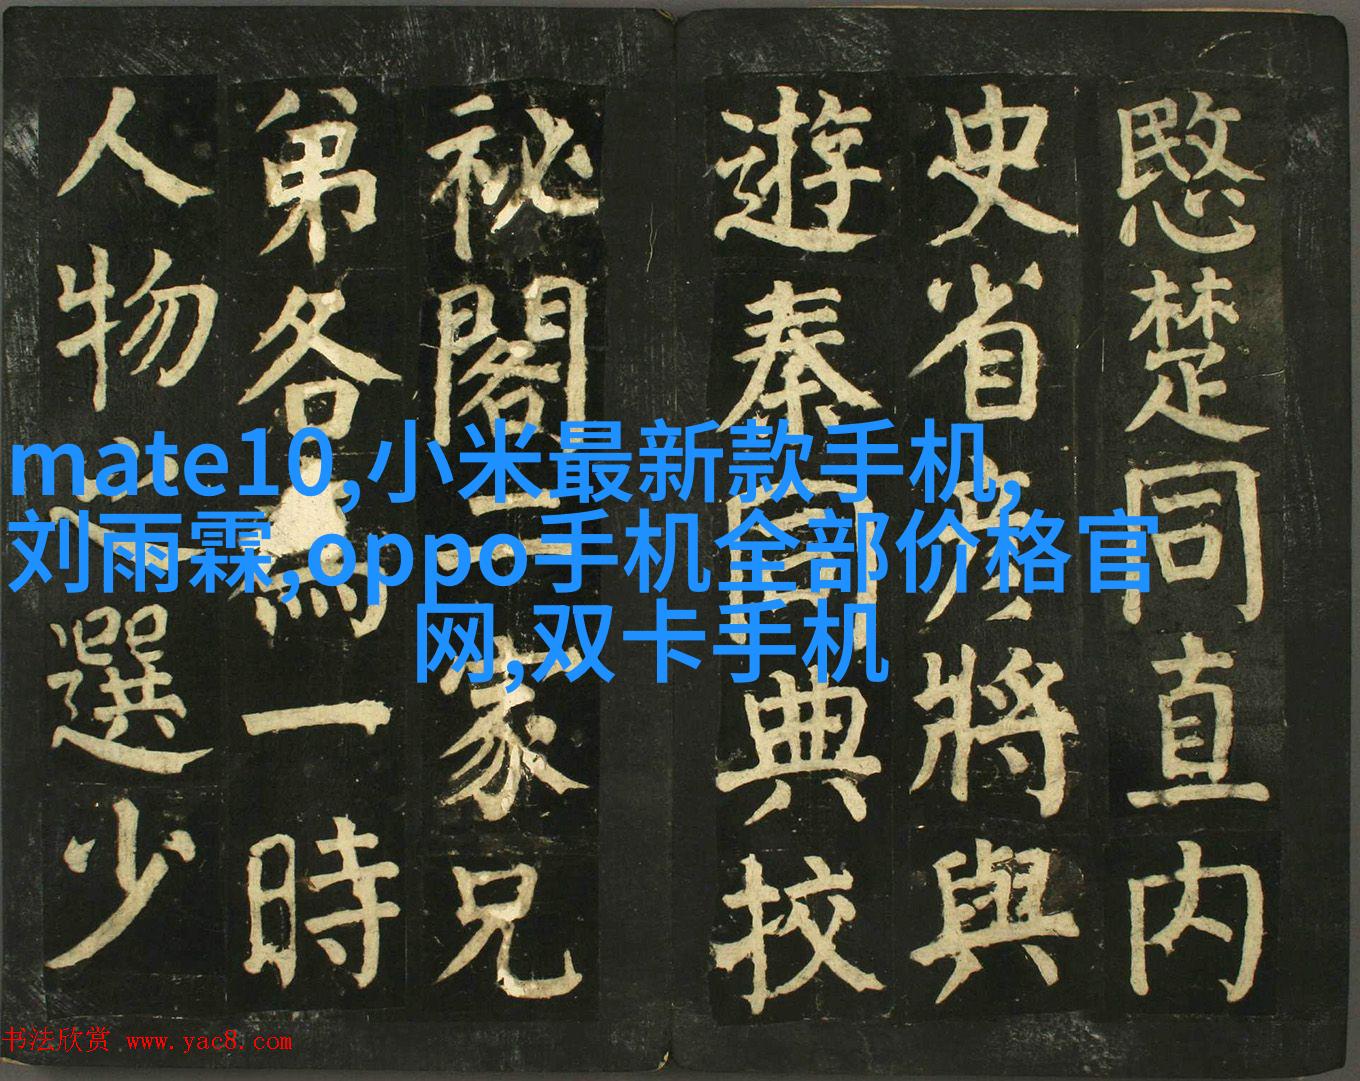 愍楚同直内
史省彦將與
遊秦同典校
祕閣二家兄
弟各為一時
人物之選少
mate10,小米最新款手机,
刘雨霖,oppo手机全部价格官
网,双卡手机
书法欣赏 www.yac8.com